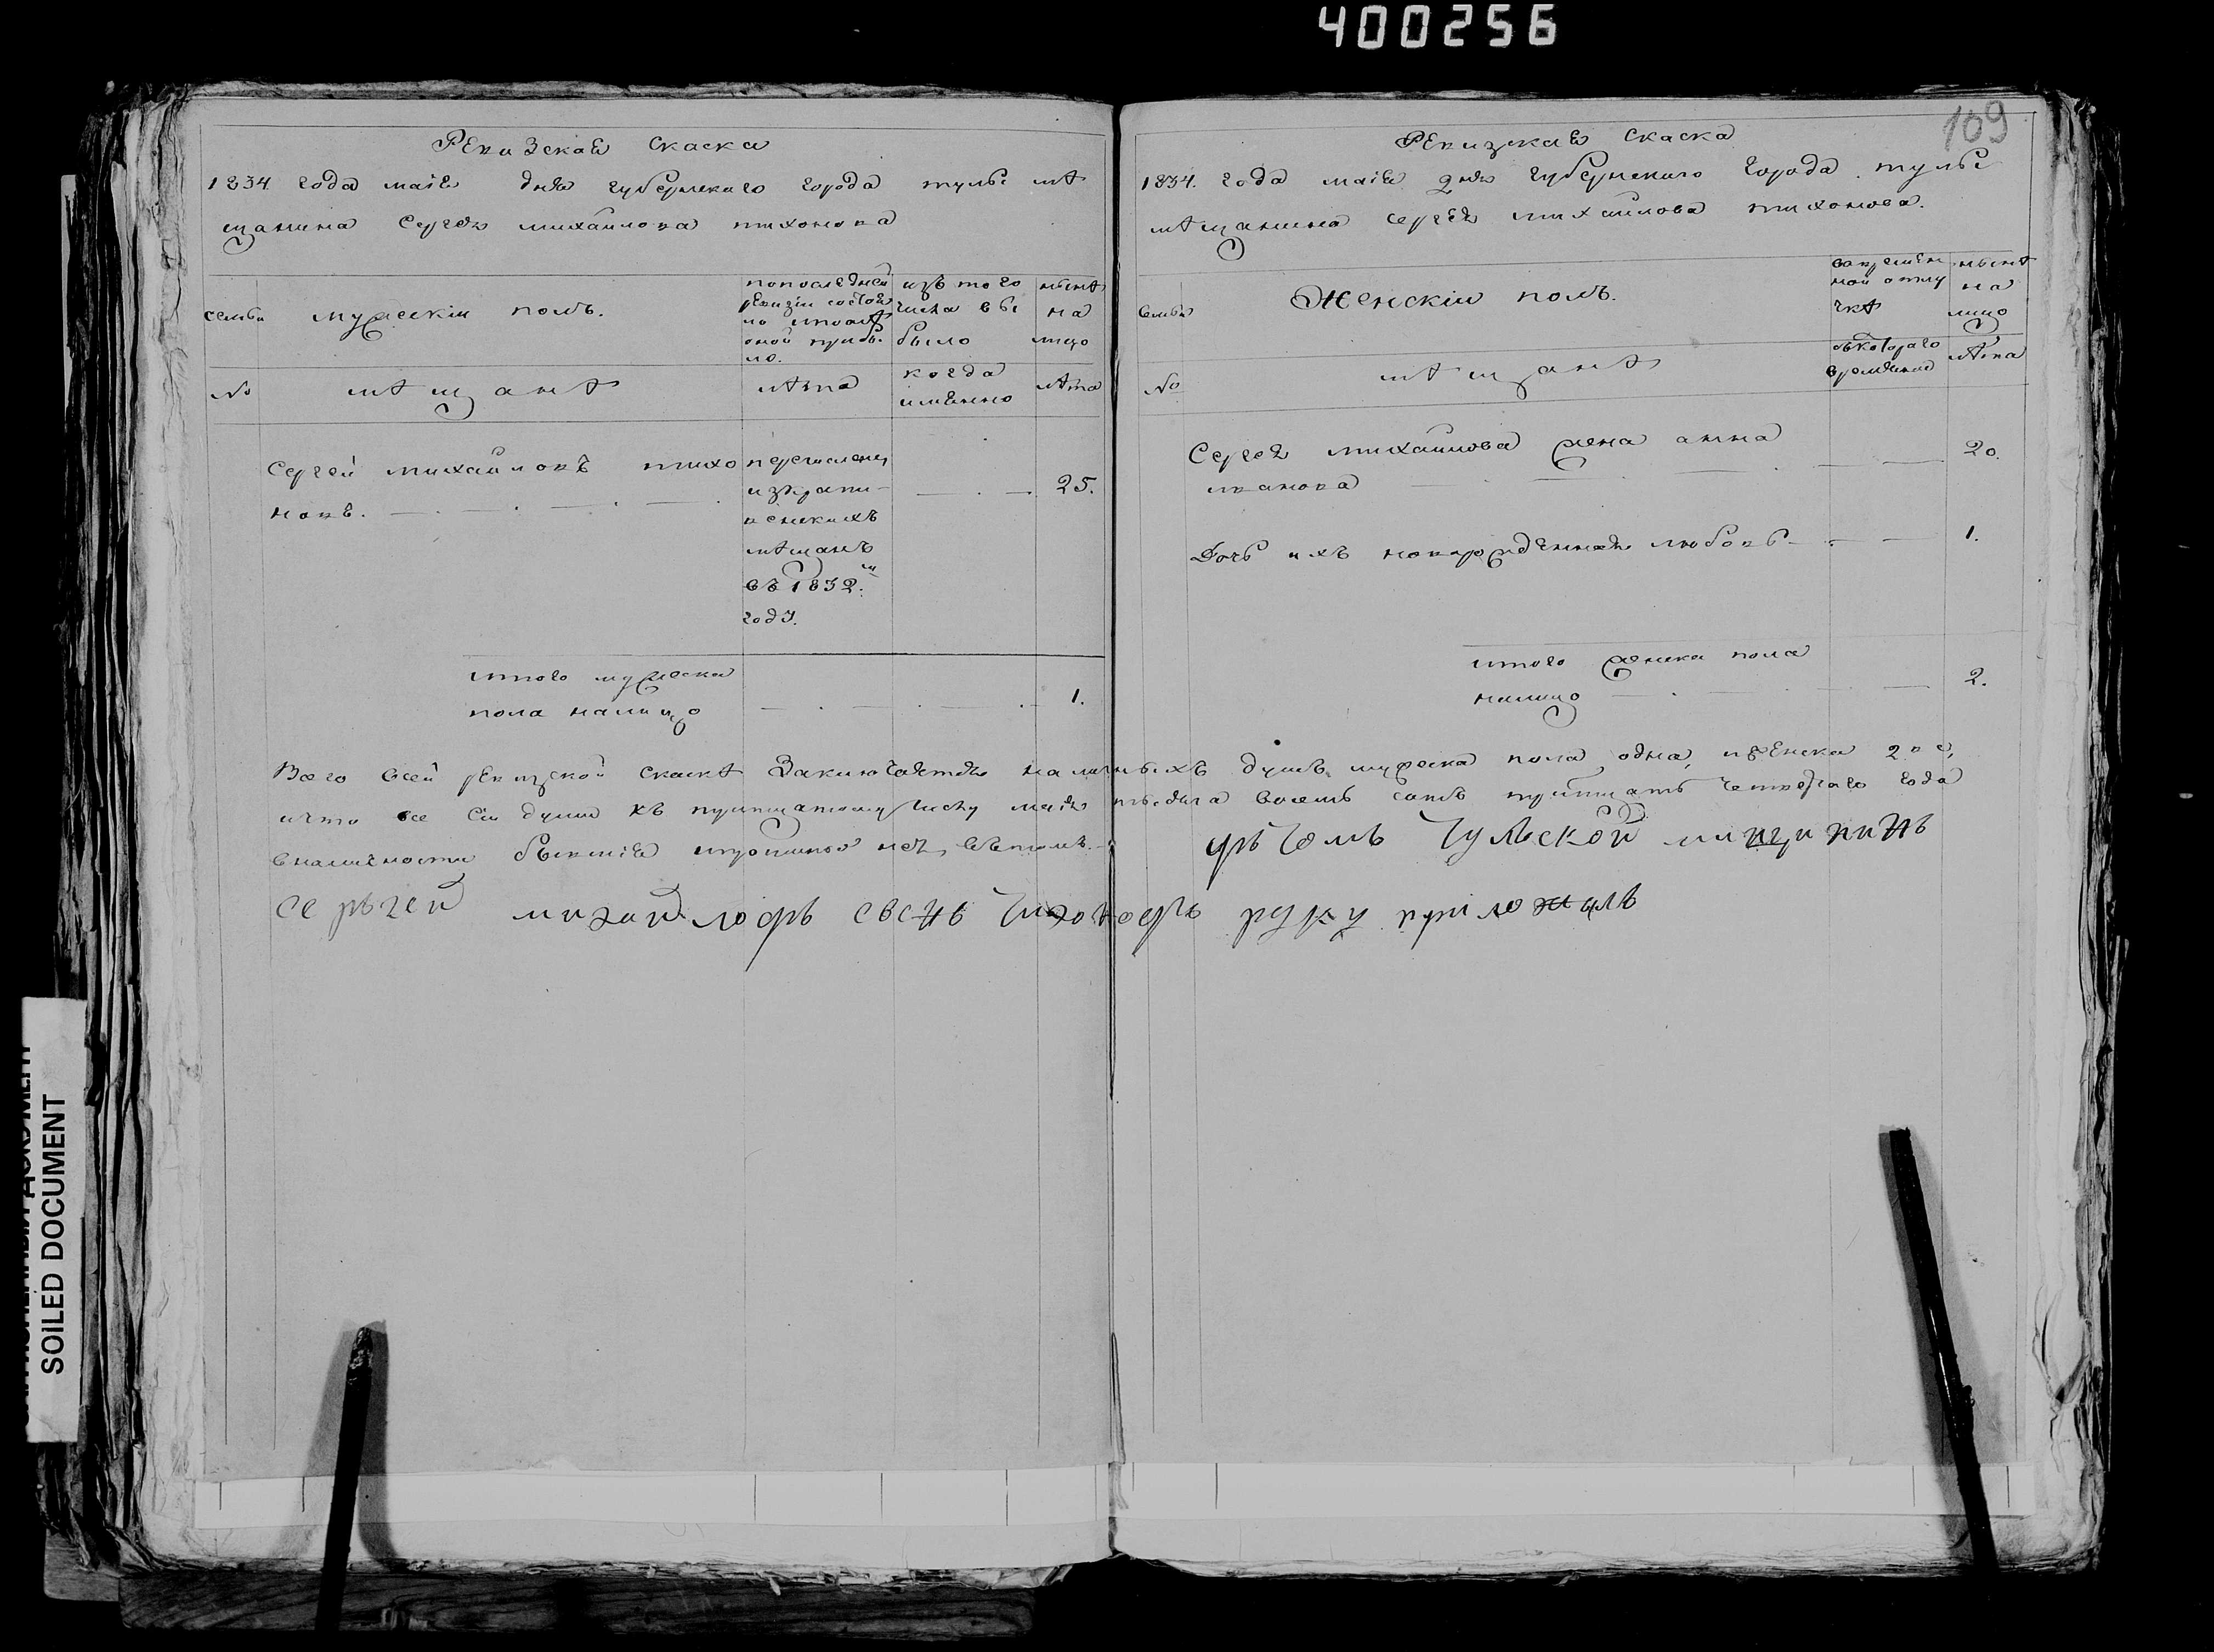 400256
109
Ревизская скаска
1834 года маія дня губернскаго города тулы мѣ
щанина Сергея михайлова тихонова
семьи
мужескій полъ.
попоследней
ревизіи состоя
ло ипослѣ
оной прибы
ло.
изъ того
числа выбыло
нынѣ
на
лицо
№
мѣщанѣ
лѣта
когда
имѣнно
лѣта
Сергей михайловъ тихо
новъ.
перечисленъ
изъ
мѣщанъ
въ 1832.м
году.
25.
итого мужеска
пола налицо
1.
Ревизская скаска
1834. года маія дня губернскаго города тулы
мѣщанина сергея михайлова тихонова.
семьи
Женскій полъ.
вовремѣн
ной отлу
чкѣ
нынѣ
на
лицо
№
мѣщанѣ
съкотораго
времѣни
лѣта
Сергея михайлова жена анна
иванова
20.
Дочь ихъ новорожденная любовь
1.
итого женска пола
налицо
2.
Всего всей ревизской скаскѣ Заключаѣтся наличныхъ душъ мужеска пола одна, иженска 2ве,
ичто все сіи души къ пунцатому числу маія тысяча восемь сотъ тритцать четвертаго года
вналичности бывшіе ипропиныхъ нетъ, вътомъ.
чульской
серьгей михайлофъ сынъ тихонофъ руку приложилъ
SOILED DOCUMENT